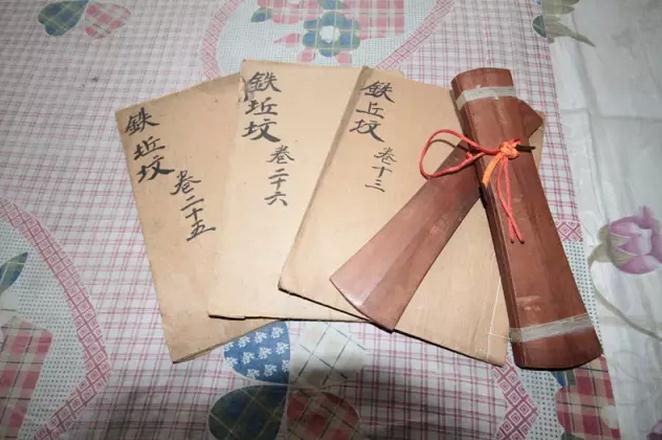 鉄坵坟
卷二十五
鉄坵坟
卷二十六
鉄丘坟
卷十三